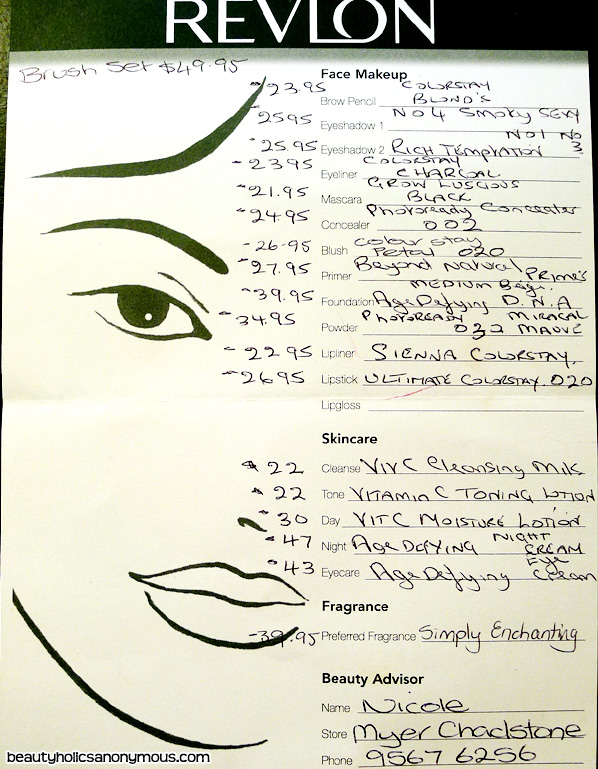 REVLON
Brush Set $49.95
Face Makeup
COLORSTAY
23.95 Brow Pencil BLOND'S
25 95 Eyeshadow 1 No 4 SMOKY SEXY
No 1 No 3
25.95 Eyeshadow 2 RICH TEMPTATION
COLORSTAY
23 95 Eyeliner CHARCOAL
GROW LUSCIOUS
21.95 Mascara BLACK
Photoready Concealer
24.95 Concealer 002
Colour Stay
26.95 Blush Petal 020
27.95 Primer Beyond Natural PRIMER
MEDIUM Beige
39.95 Foundation Age Defying D.N.A
PHOTOREADY MIRACAL
34.95 Powder 032 MAUVE
22 95 Lipliner SIENNA COLORSTAY,
26 95 Lipstick ULTIMATE COLORSTAY. 020
Lipgloss
Skincare
22 Cleanse Vit C Cleansing Milk
22 Tone VITAMIN C TONING LOTION
30 Day VIT C MOISTURE LOTION
47 Night Age DEFYING NIGHT CREAM
43 Eyecare Age Defying Eye Cream
Fragrance
39.95 Preferred Fragrance Simply Enchanting
Beauty Advisor
Name Nicole
Store Myer Chadstone
Phone 9567 6256
beautyholicsanonymous.com